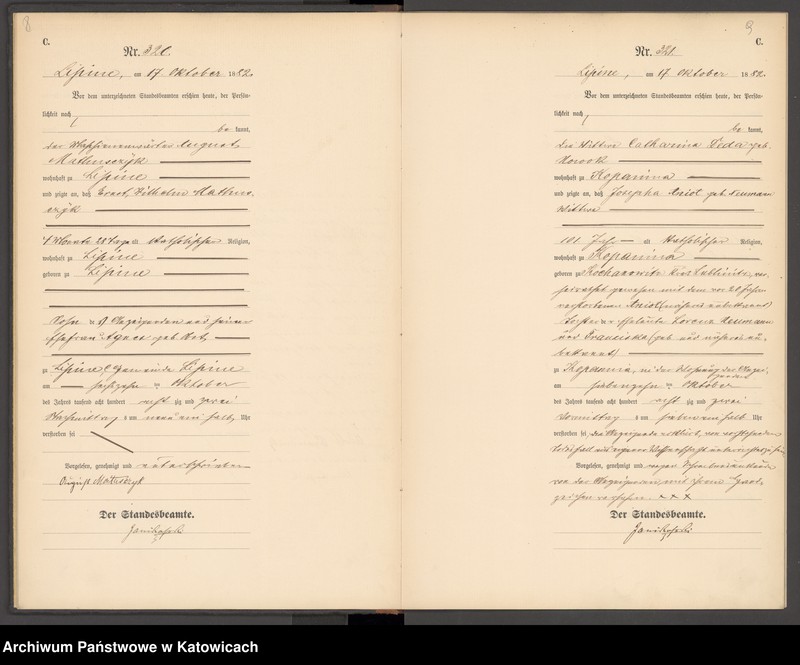 8
C.
Nr. 320.
Lipine, am 17 Oktober 1882.
Vor dem unterzeichneten Standesbeamten erschien heute, der Persön-
lichkeit nach
be kannt,
der August
wohnhaft zu Lipine
und zeigte an, daß Ernst, Wilhelm
4 Monate 28 Tage alt katholischer Religion,
wohnhaft zu Lipine
geboren zu Lipine
Sohn des Anzeigenden und seiner
Ehefrau Agnes geb.
zu Lipine, Gemeinde Lipine
am sechszehn ten Oktober
des Jahres tausend acht hundert acht zig und zwei
Nachmittag s um neun ein halb Uhr
verstorben sei
Vorgelesen, genehmigt und unterschrieben
August
Der Standesbeamte.
9
C.
Nr. 321.
Lipine, am 17 Oktober 1882.
Vor dem unterzeichneten Standesbeamten erschien heute, der Persön-
lichkeit nach
be kannt,
die Wittwe Catharina geb.
wohnhaft zu Kopanina
und zeigte an, daß Josepha geb. Neumann
Wittwe
101 Jahr alt katholischer Religion,
wohnhaft zu Kopanina
geboren zu Kochanowitz Kreis Lublinitz, ver
heirathet gewesen mit dem vor 20 Jahren
verstorbenen (näheres unbekannt)
Tochter der Eheleute Lorenz Neumann
und Franciska (geb. und näheres un-
bekannt)
zu Kopanina, in der Wohnung der Anzei-
genden
am siebenzehn ten Oktober
des Jahres tausend acht hundert acht zig und zwei
Vormittag s um sieben ein halb Uhr
verstorben sei, die Anzeigende erklärt, von vorstehendem
Todesfall aus eigener Wissenschaft unterrichtet zu sein
Vorgelesen, genehmigt und wegen Schreibensunkunde
von der Anzeigenden mit ihrem Hand-
zeichen versehen. x x x
Der Standesbeamte.
Archiwum Państwowe w Katowicach